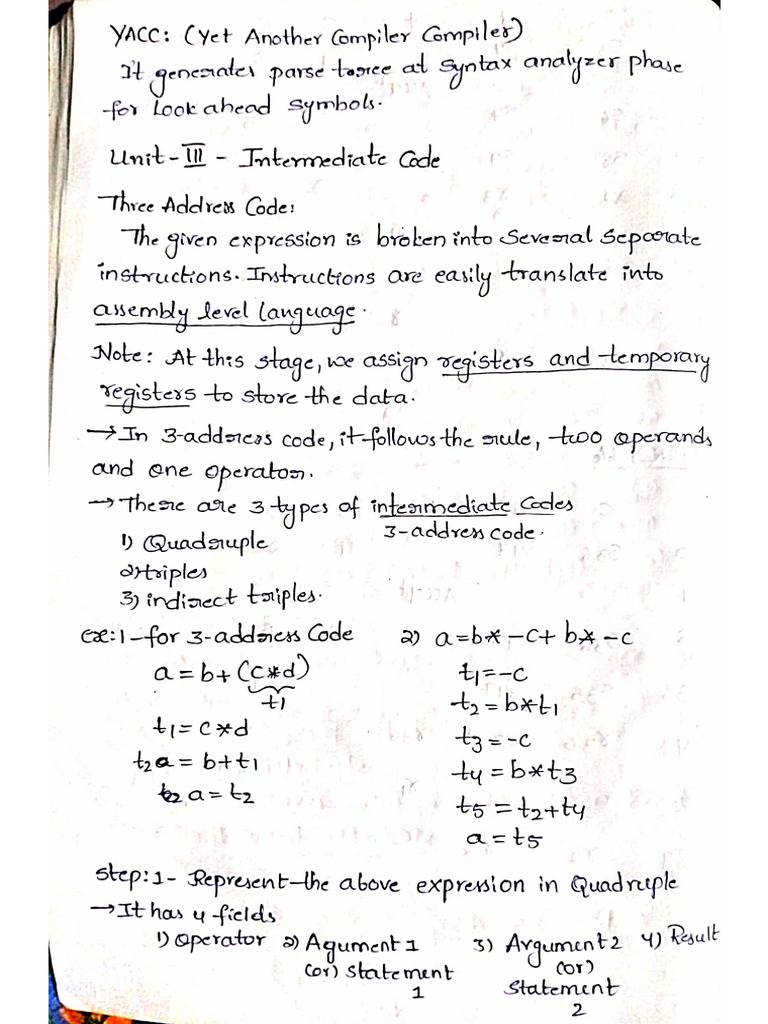 YACC: (Yet Another Compiler Compiler)
It generates parse tree at Syntax analyzer phase
for Look ahead Symbols.
Unit-III - Intermediate Code
Three Address Code:
The given expression is broken into Several Separate
instructions. Instructions are easily translate into
assembly level language.
Note: At this stage, we assign registers and temporary
registers to store the data.
→ In 3-address code, it follows the rule, two operands
and one operator.
→ There are 3 types of intermediate Codes
3-address code.
1) Quadruple
2) triples
3) indirect triples.
ex:1 - for 3-address Code
a = b + (c*d)
t1
t1 = c*d
t2 a = b+t1
t2 a = t2
2) a = b* -c + b* -c
t1 = -c
t2 = b*t1
t3 = -c
t4 = b*t3
t5 = t2+t4
a = t5
Step:1- Represent the above expression in Quadruple
→ It has 4 fields
1) Operator 2) Agument 1 3) Argument 2 4) Result
(or) Statement (or)
1 Statement
2